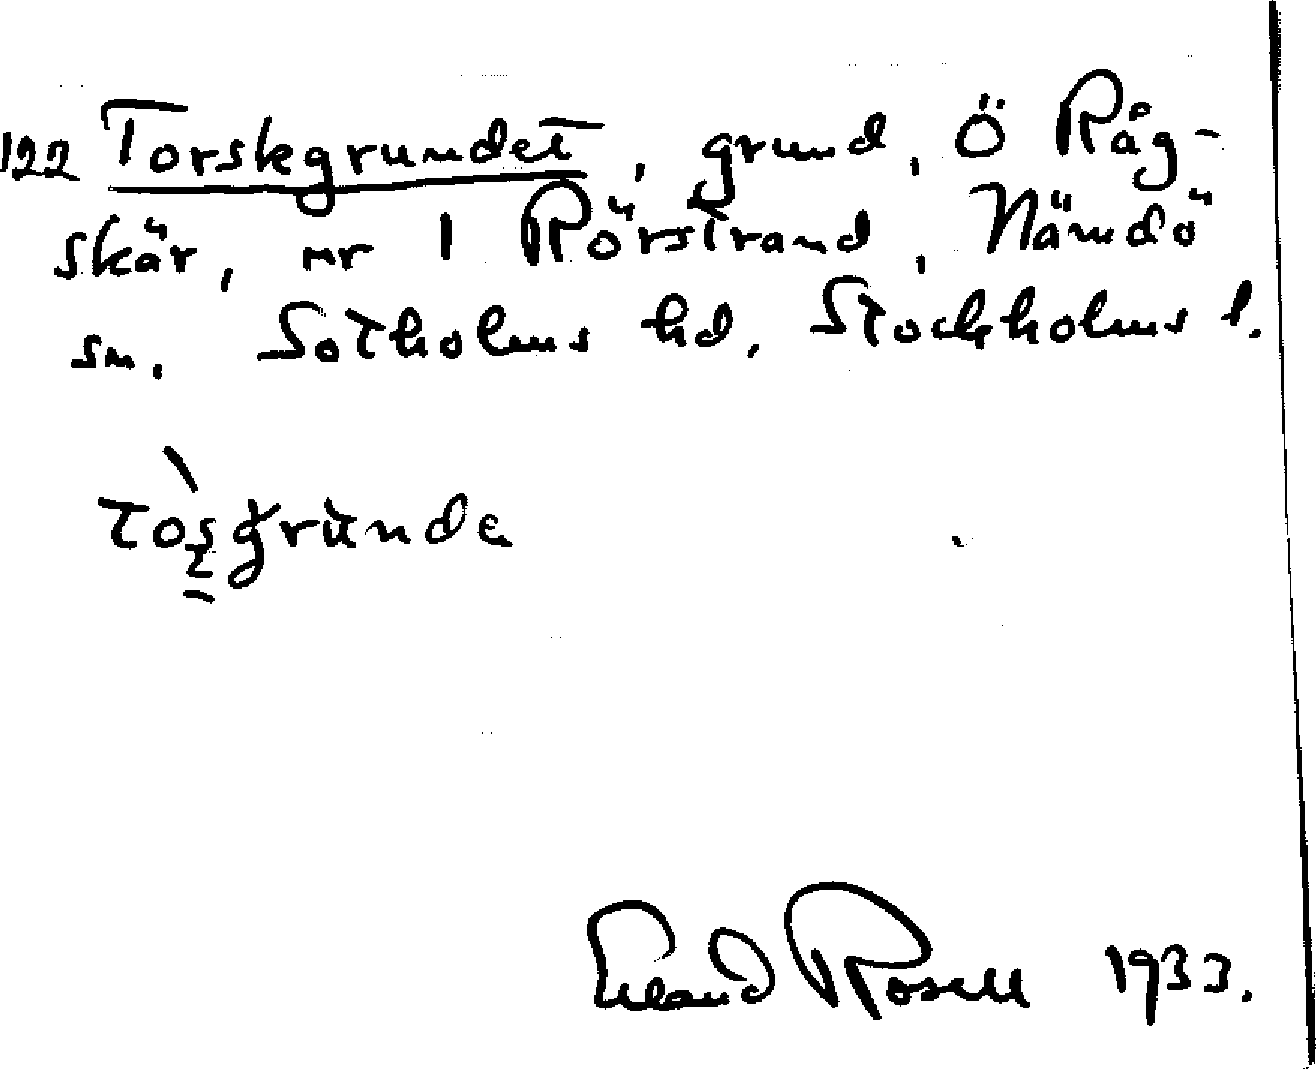 122 Torskgrundet, grund, Ö Råg-
skär, nr 1 Rörstrand, Nämdö
sn. Sotholms hd. Stockholms l.
tòsgrùnde
Erland Rosell 1933.